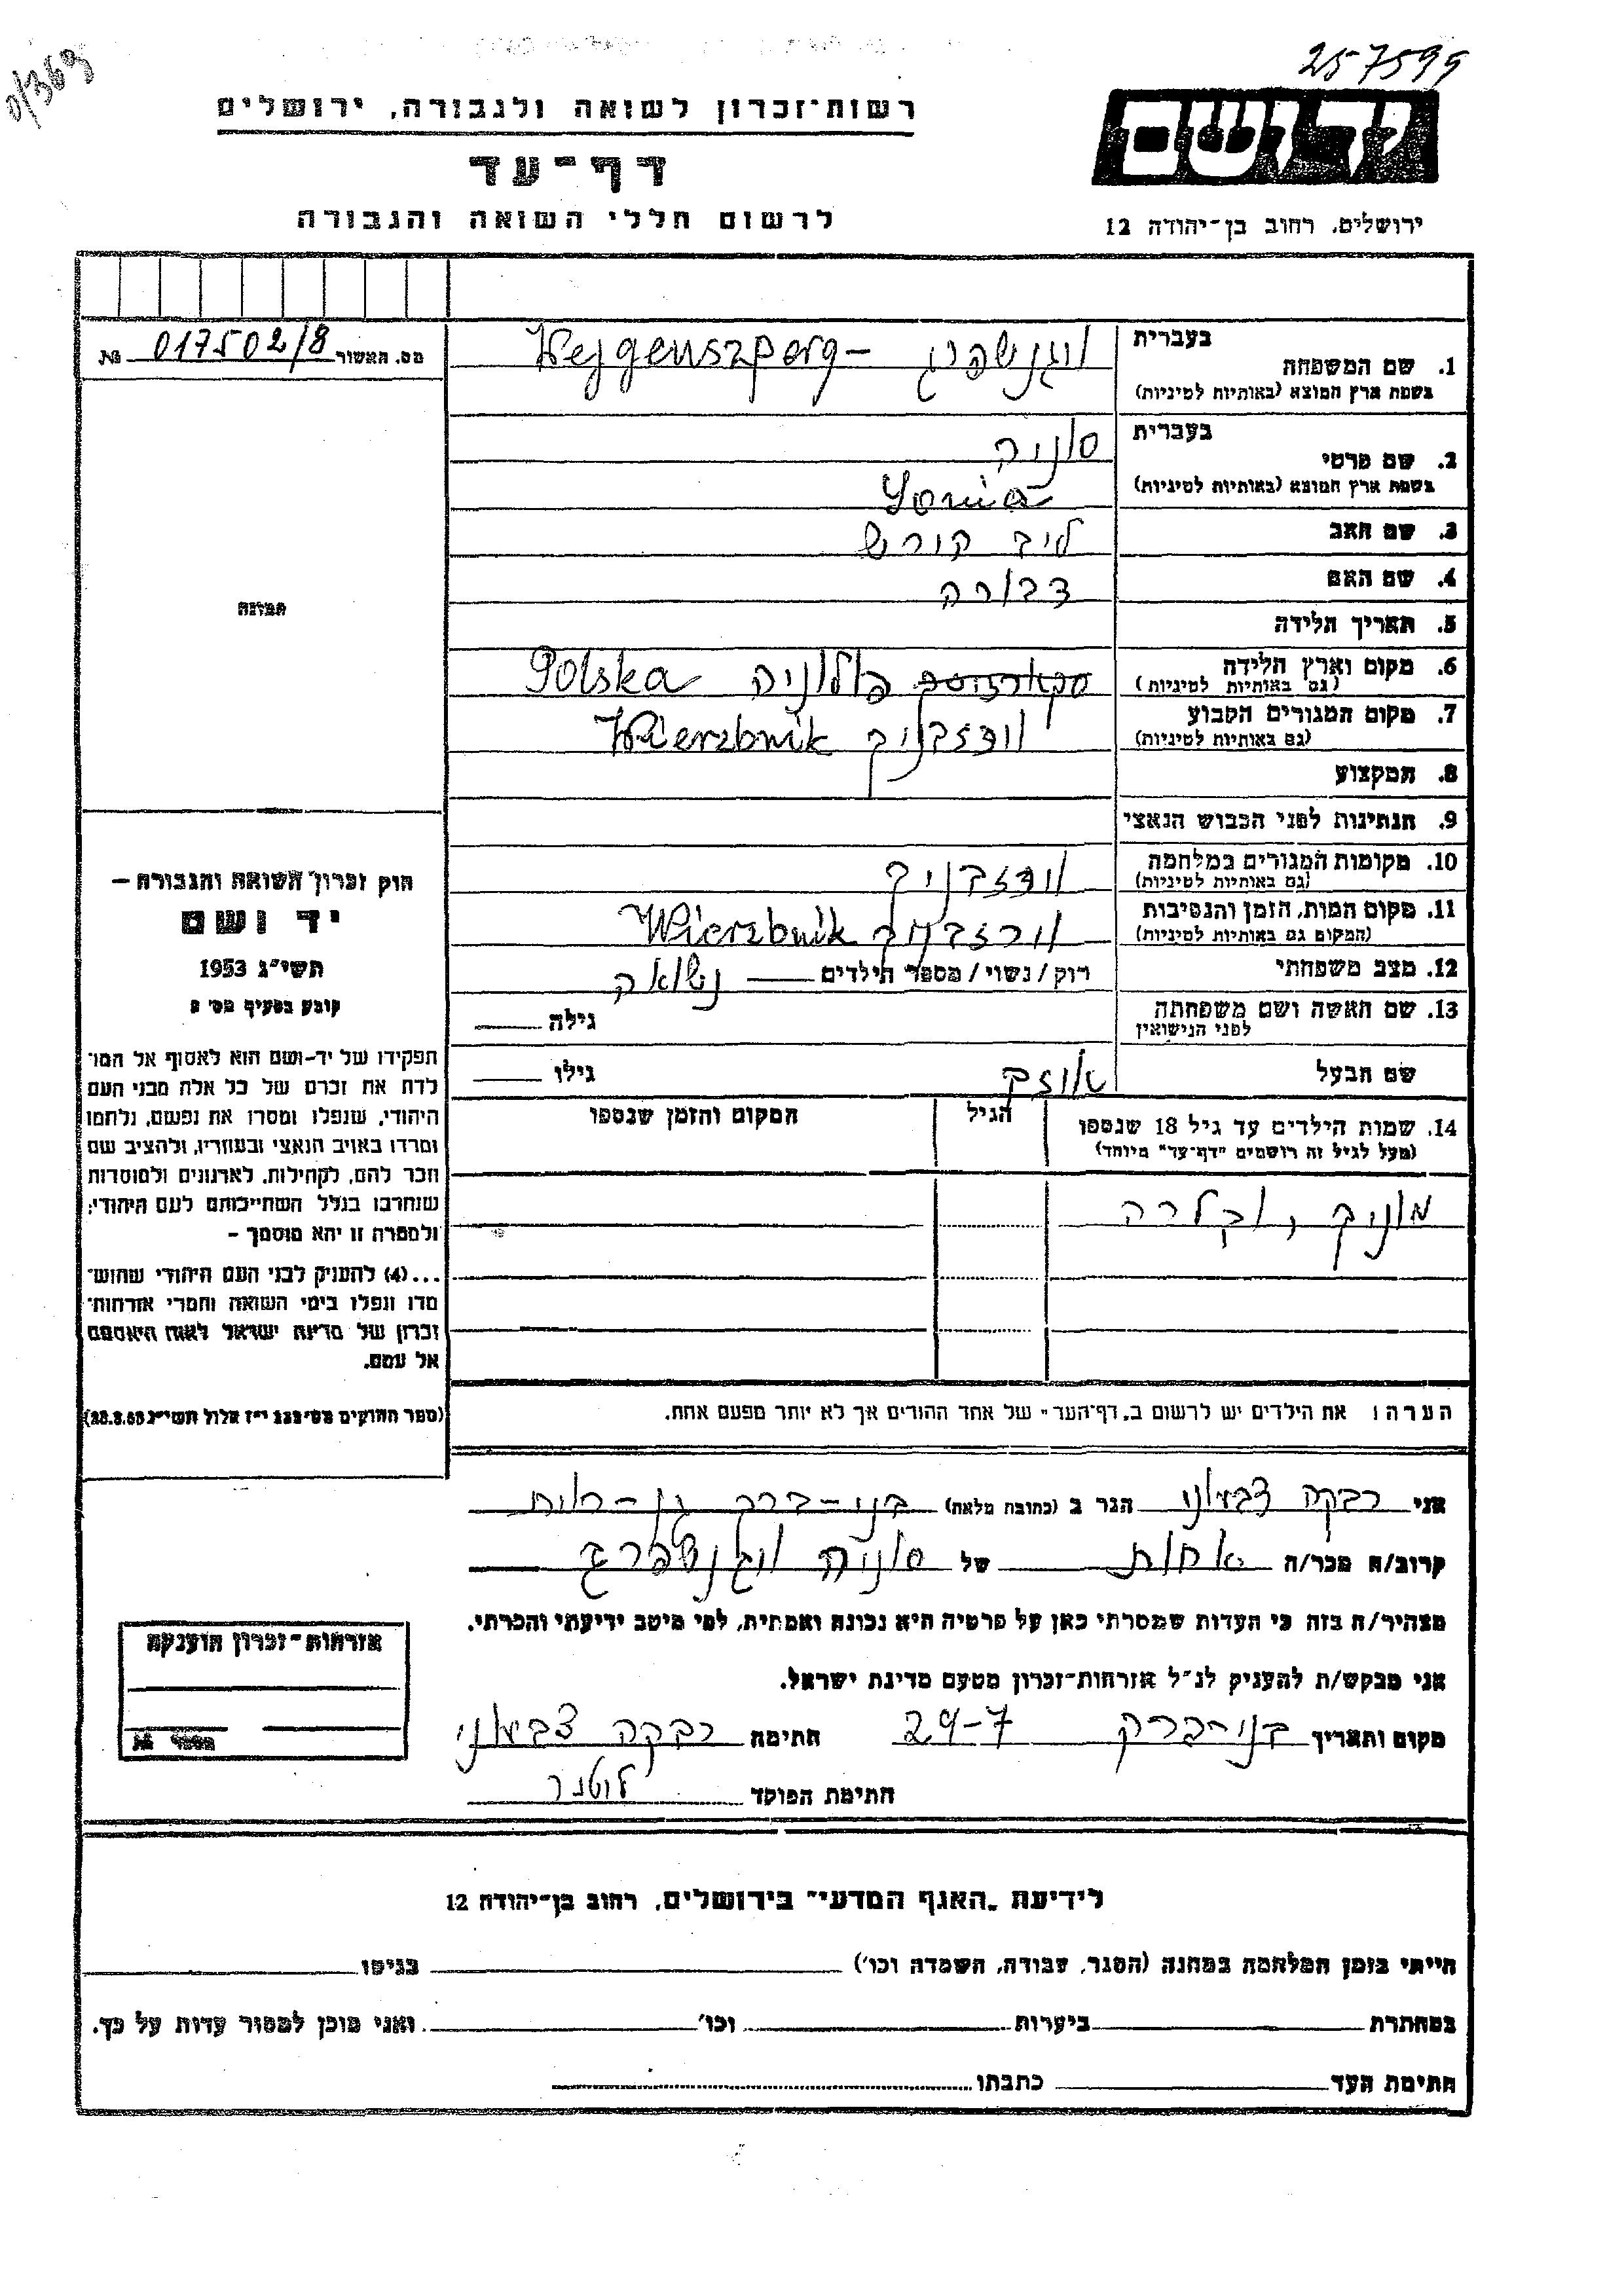 257599
0/369
יד ושם
ירושלים, רחוב בן־יהודה 12
רשות־זכרון לשואה ולגבורה, ירושלים
דף־עד
לרשום חללי השואה והגבורה
מס. האשור 017502/8 №
בעברית
1. שם המשפחה
בשפת ארץ המוצא (באותיות לטיניות)
Wejgenszperg –
בעברית
2. שם פרטי
בשפת ארץ המוצא (באותיות לטיניות)
סוניה
Sonia
3. שם האב ליב קורש
4. שם האם דבורה
5. תאריך הלידה
6. מקום וארץ הלידה פולוניה Polska
(גם באותיות לטיניות)
7. מקום המגורים הקבוע Wierzbnik
(גם באותיות לטיניות)
8. המקצוע
9. הנתינות לפני הכבוש הנאצי
10. מקומות המגורים במלחמה
(גם באותיות לטיניות)
11. מקום המות, הזמן והנסיבות Wierzbnik
(המקום גם באותיות לטיניות)
12. מצב משפחתי רוק / נשוי / מספר הילדים נשואה
13. שם האשה ושם משפחתה גילה
לפני הנישואין
שם הבעל גילו
14. שמות הילדים עד גיל 18 שנספו הגיל המקום והזמן שנספו
(מעל לגיל זה רושמים "דף־עד" מיוחד)
מוניק, וקלרה
הערה: את הילדים יש לרשום ב„דף־העד" של אחד ההורים אך לא יותר מפעם אחת.
תמונה
חוק זכרון השואה והגבורה –
יד ושם
תשי"ג 1953
קובע בסעיף מס' 2
תפקידו של יד-ושם הוא לאסוף אל המו־
לדת את זכרם של כל אלה מבני העם
היהודי, שנפלו ומסרו את נפשם, נלחמו
ומרדו באויב הנאצי ובעוזריו, ולהציב שם
וזכר להם, לקהילות, לארגונים ולמוסדות
שנחרבו בגלל השתייכותם לעם היהודי;
ולמטרה זו יהא מוסמך –
...(4) להעניק לבני העם היהודי שהוש־
מדו ונפלו בימי השואה והמרי אזרחות־
זכרון של מדינת ישראל לאות היאספם
אל עמם.
(ספר החוקים מס' 132 י"ז אלול תשי"ג 28.8.53)
אני רבקה הגר ב (כתובת מלאה) בני-ברק
קרוב/ה מכר/ה אחות של סוניה
מצהיר/ה בזה כי העדות שמסרתי כאן על פרטיה היא נכונה ואמתית, לפי מיטב ידיעתי והכרתי.
אני מבקש/ת להעניק לנ"ל אזרחות־זכרון מטעם מדינת ישראל.
מקום ותאריך בני-ברק 29-7 חתימה רבקה
חתימת הפוקד
אזרחות־זכרון הוענקה
מספר №
לידיעת „האגף המדעי" בירושלים, רחוב בן־יהודה 12
הייתי בזמן המלחמה במחנה (הסגר, עבודה, השמדה וכו') בגיטו
במחתרת ביערות וכו' ואני מוכן למסור עדות על כך.
חתימת העד כתבתו